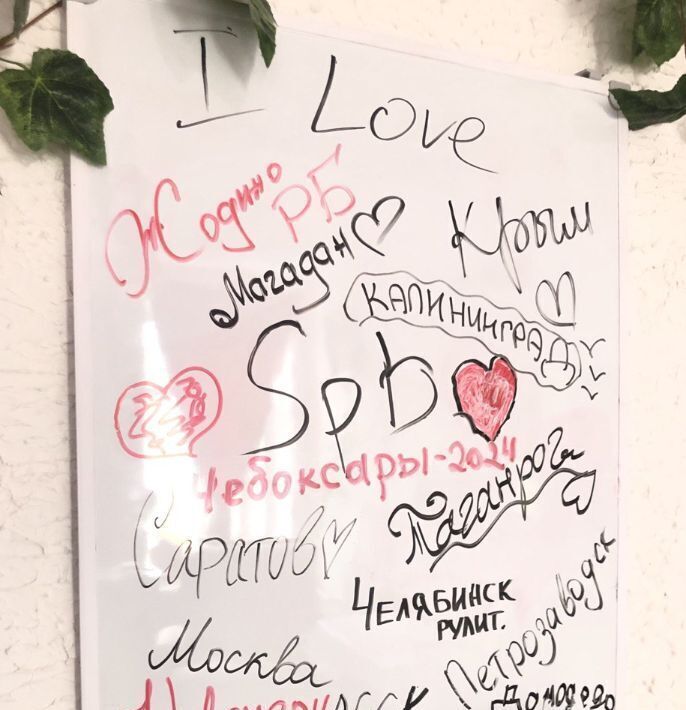 I Love
Жодино
РБ
Магадан
Крым
КАЛИНИНГРАД
Spb
Чебоксары-2024
Таганрог
Саратов
ЧЕЛЯБИНСК
РУЛИТ.
Петрозаводск
Москва